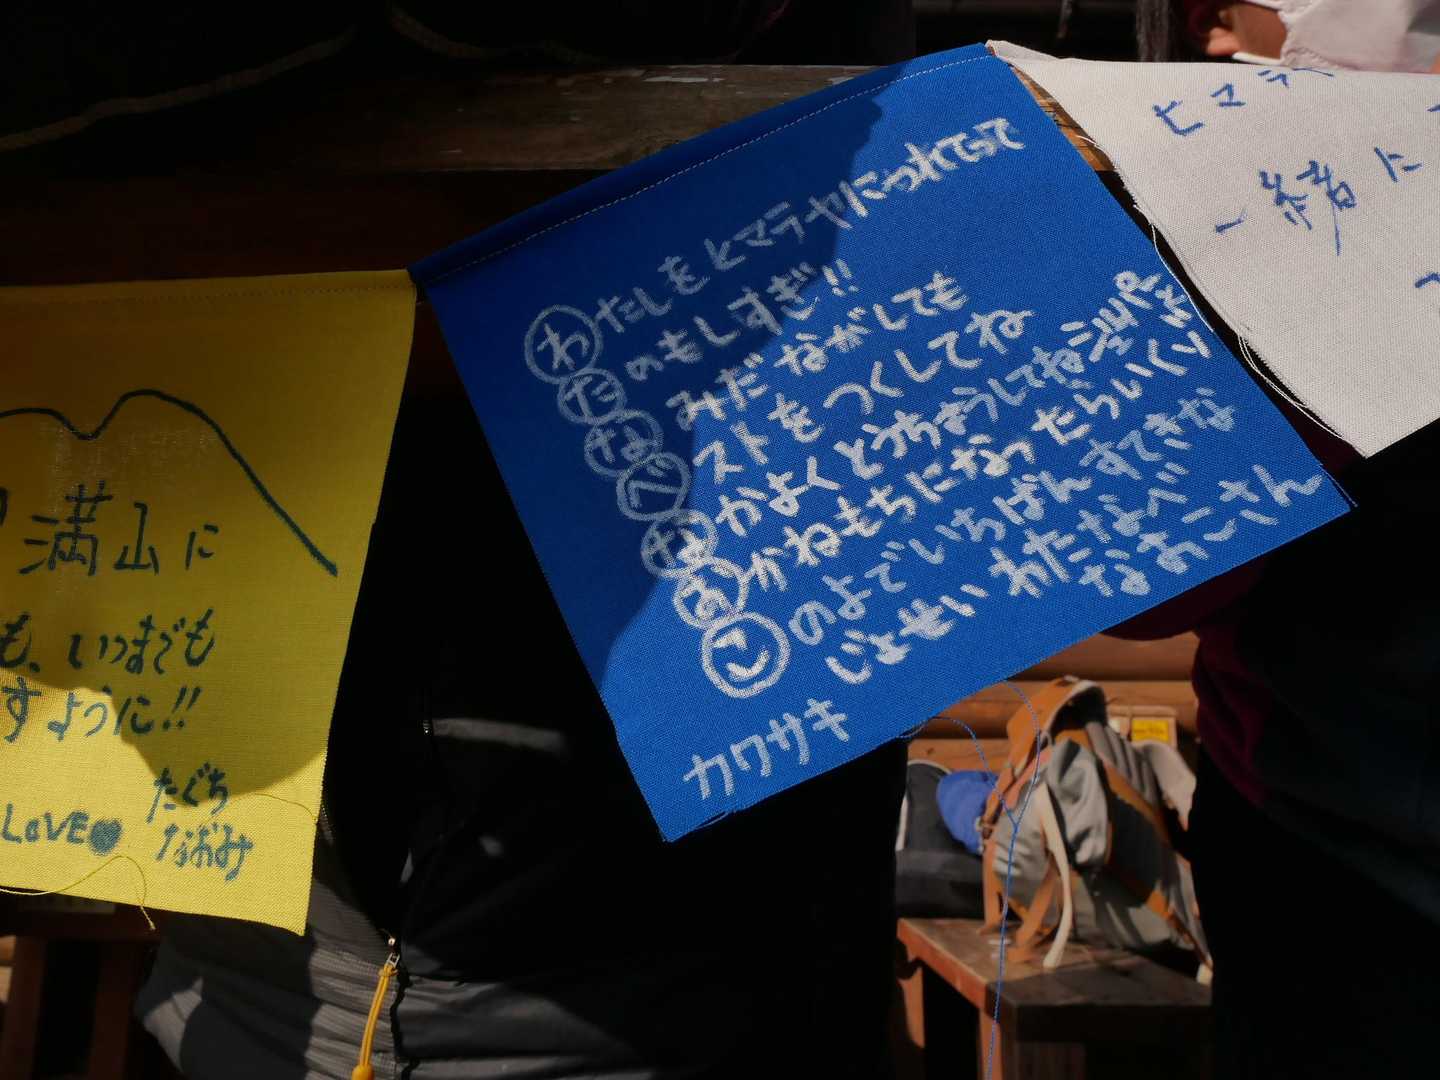 満山に
も、いつまでも
すように!!
たぐち
LOVE なおみ
わたしをヒマラヤにつれてって
たのもしすぎ!!
なみだながしても
べストをつくしてね
なかよくとうちゃうしてね
おかねもちになったらいくゾ
このよでいちばんすてきな
じょせい わたなべ
なおこさん
カワサキ
ヒマラ
一緒に